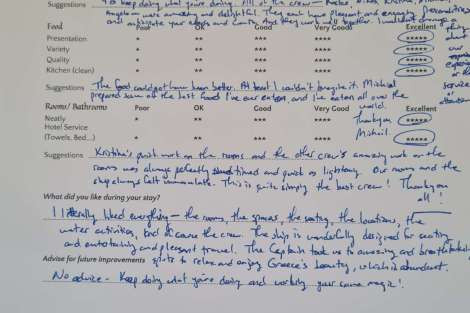 Suggestions To keep doing what you're doing. All of the crew —
were amazing and delightful. They each have pleasant and engaging personalities
and anticipate your needs and wants. And they work well together. I wouldn't change a
Food Poor OK Good Very Good Excellent thing
Presentation * ** *** **** ***** about
Variety * ** *** **** ***** our
Quality * ** *** **** ***** experience
Kitchen (clean) * ** *** **** ***** or the
service
or attention
Suggestions The food could not have been better. At least I couldn't imagine it. Michail
prepared some of the best food I've ever eaten, and I've eaten all over the
world.
Rooms/ Bathrooms Poor OK Good Very Good Excellent
Neatly * ** *** **** ***** Thank you
Michail.
Hotel Service
(Towels, Bed...) * ** *** **** *****
Suggestions Kristina's quiet work on the rooms and the other crew's amazing work on the
rooms was always perfectly timed and quick as lightning. Our rooms and the
ship always felt immaculate. This is quite simply the best crew! Thank you
all!
What did you like during your stay?
I literally liked everything — the rooms, the spaces, the eating, the locations, the
water activities, and of course the crew. The ship is wonderfully designed for exciting
and entertaining and pleasant travel. The Captain took us to amazing and breathtaking
Advise for future improvements spots to relax and enjoy Greece's beauty, which is abundant.
No advice - Keep doing what you're doing and working your same magic!